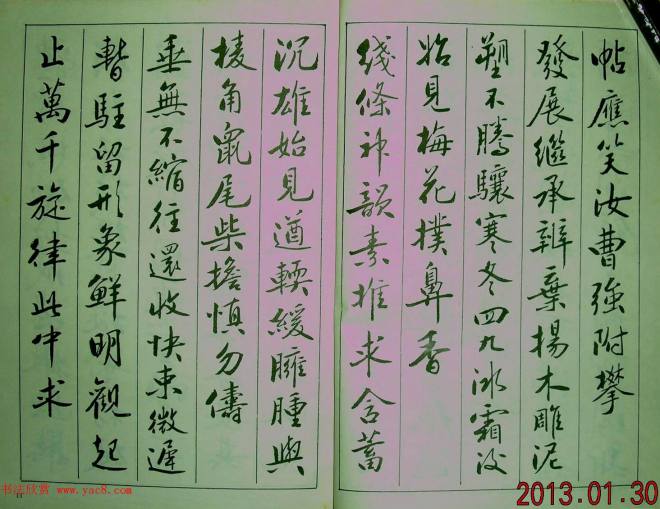 帖應笑汝曹強附攀
發展繼承辨棄揚木雕泥
塑不騰驤寒冬四九冰霜後
始見梅花撲鼻香
綫條神韻素推求含蓄
沉雄始見遒輭緩臃腫與
棱角鼠尾柴擔慎勿儔
垂無不縮往還收快束微遲
暫駐留形象鮮明觀起
止萬千旋律此中求
书法欣赏 www.yac8.com
11
2013.01.30